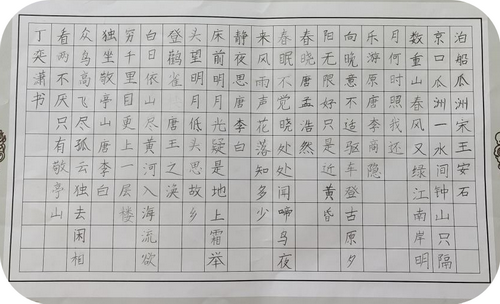 泊船瓜洲宋王安石
京口瓜洲一水间钟山只隔
数重山春风又绿江南岸明
月何时照我还
乐游原唐李商隐
向晚意不适驱车登古原夕
阳无限好只是近黄昏
春晓唐孟浩然
春眠不觉晓处处闻啼鸟夜
来风雨声花落知多少
静夜思唐李白
床前明月光疑是地上霜举
头望明月低头思故乡
登鹳雀唐王之涣
白日依山尽黄河入海流欲
穷千里目更上一层楼
独坐敬亭山唐李白
众鸟高飞尽孤云独去闲相
看两不厌只有敬亭山
丁奕潇书